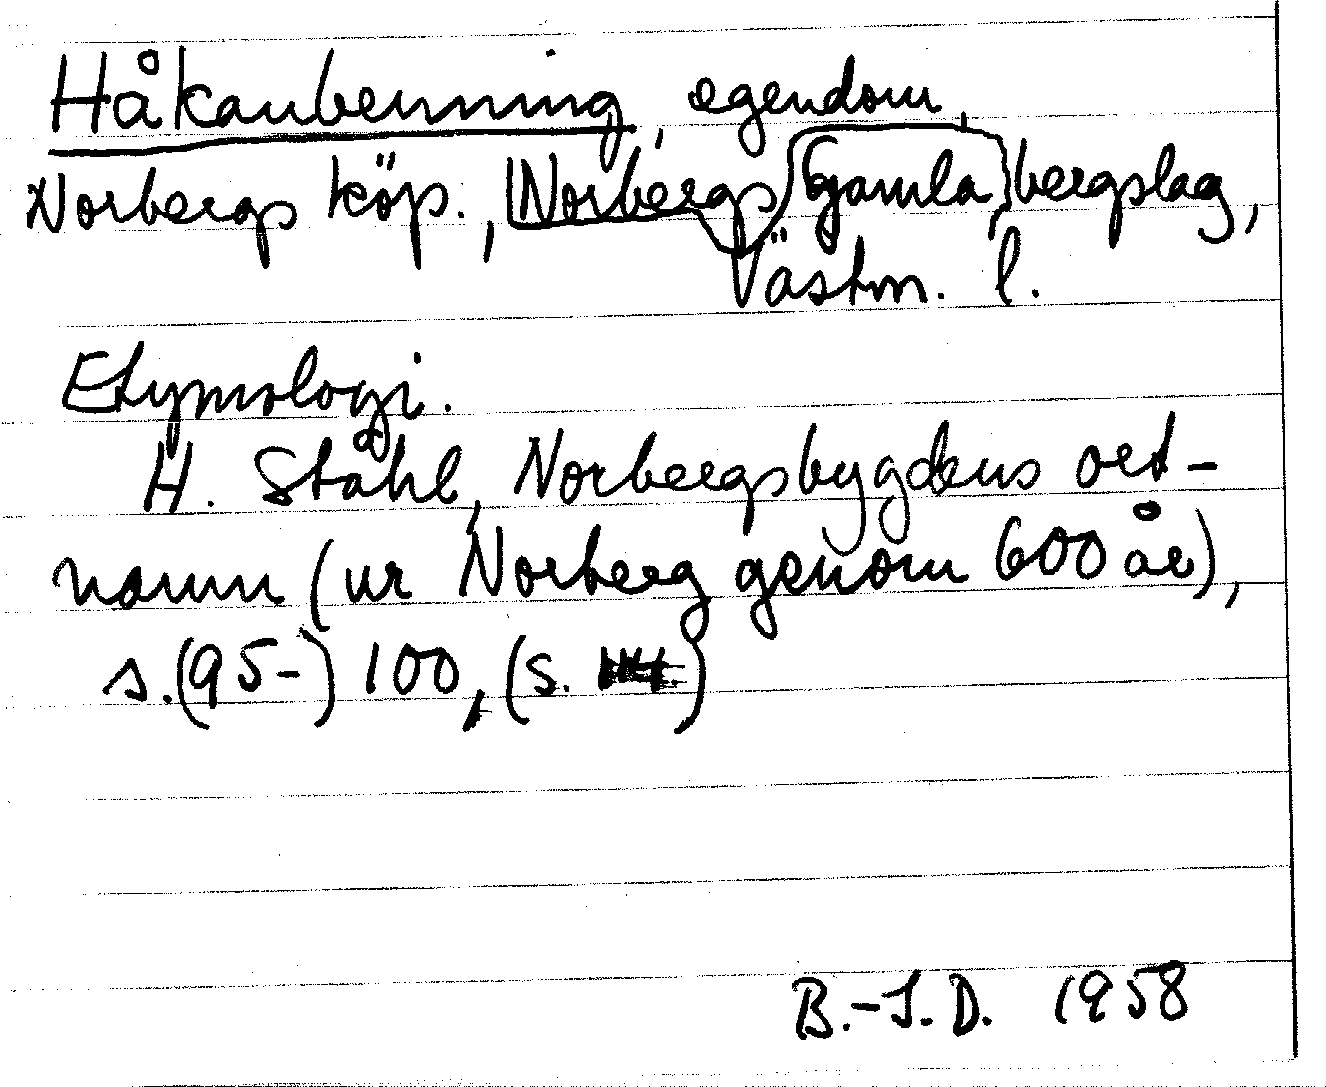 Håkanbenning, egendom,
Norbergs köp., Norbergs Gamla bergslag,
Västm. l.
Etymologi.
H. Ståhl, Norbergsbygdens ort-
namn (ur Norberg genom 600 år),
s. (95-) 100, (s. )
B.-I.D. 1958